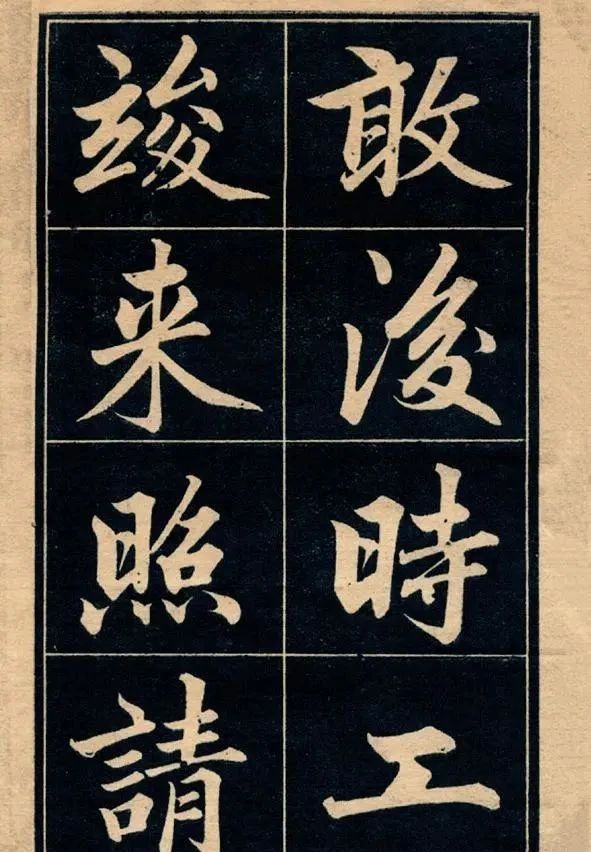 敢後時工
竣来照請